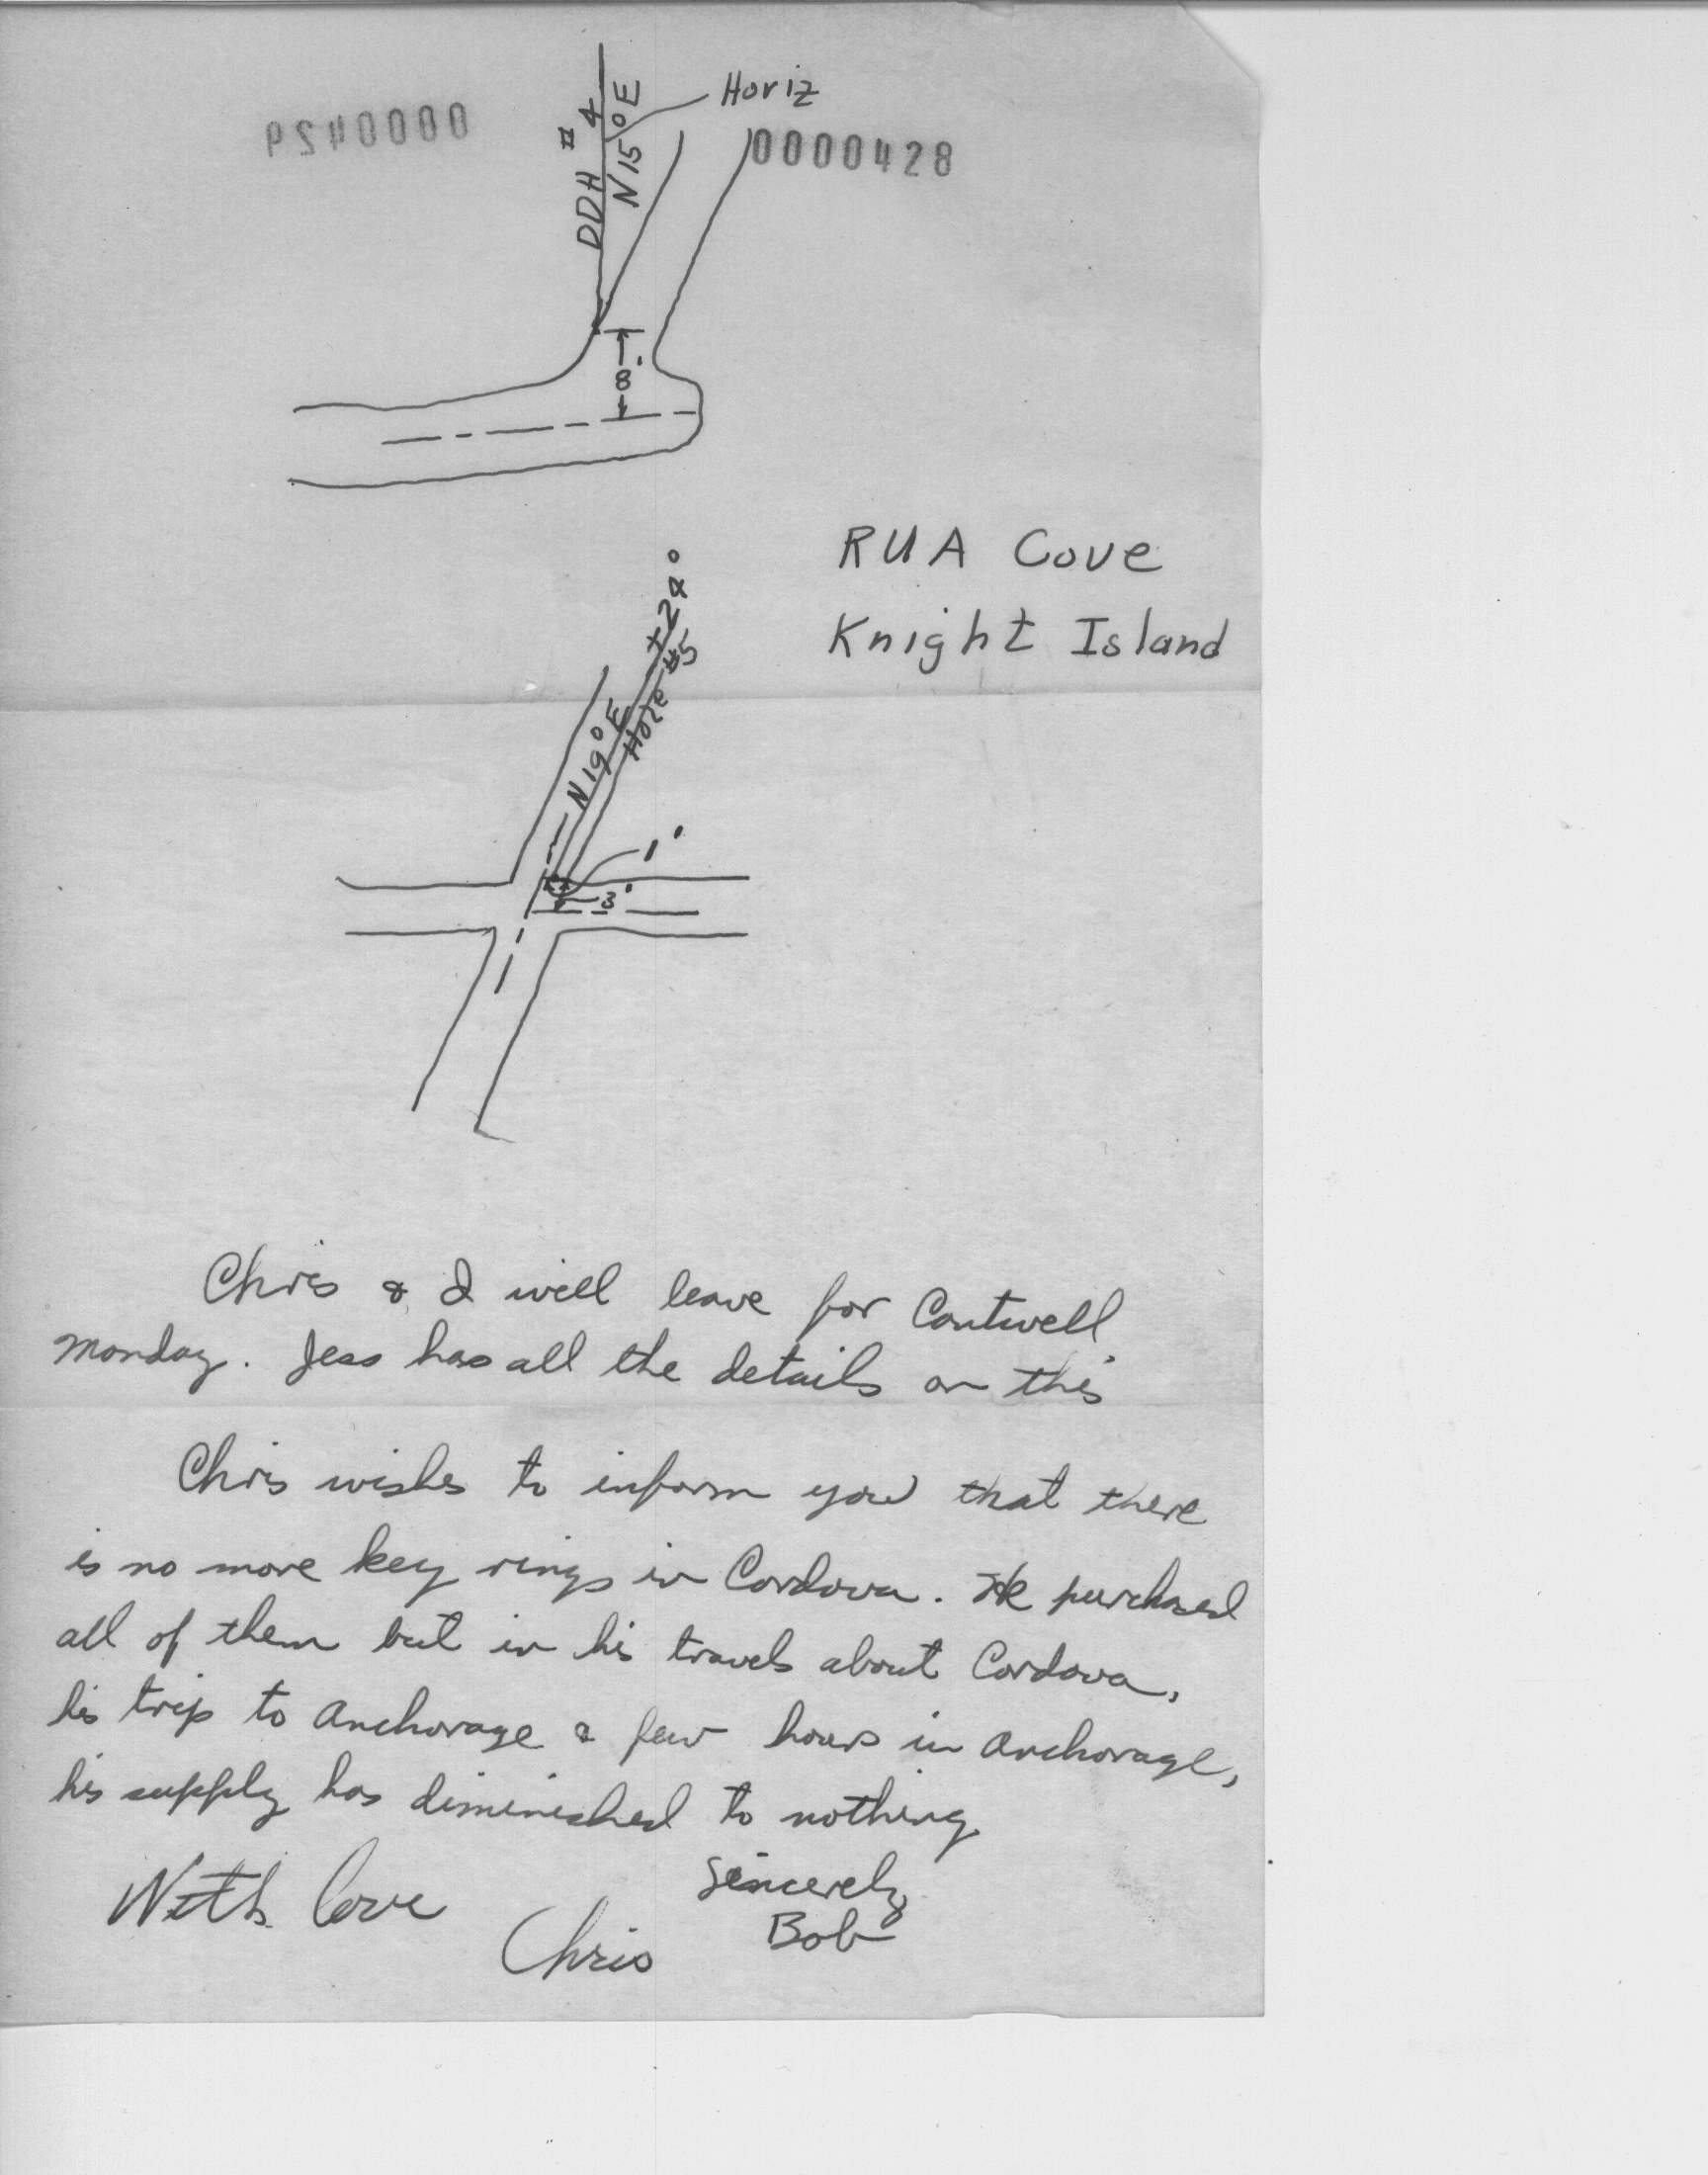 Horiz
DDH # 4
N 15° E
0000428
0000429
8'
RUA Cove
Knight Island
+24°
Hole #5
N 19° E
1'
3'
Chris & I will leave for Cantwell
Monday. Jess has all the details on this
Chris wishes to inform you that there
is no more key rings in Cordova. He purchased
all of them but in his travels about Cordova,
his trip to Anchorage & few hours in Anchorage,
his supply has diminished to nothing
Sincerely
Bob
With love
Chris